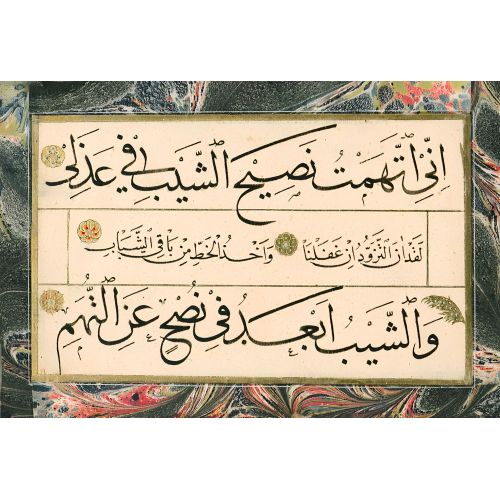 اِنِّي اتَّهَمْتُ نَصِيحَ الشَّيْبِ فِي عَذَلِي
لَقَدْ اٰنَ التَّزَوُّدُ اِنْ غَفَلْنَا وَاَخْذُ الْحَظِّ مِنْ بَاقِي الشَّبَابِ
وَالشَّيْبُ اَبْعَدُ فِي نُصْحٍ عَنِ التُّهَمِ